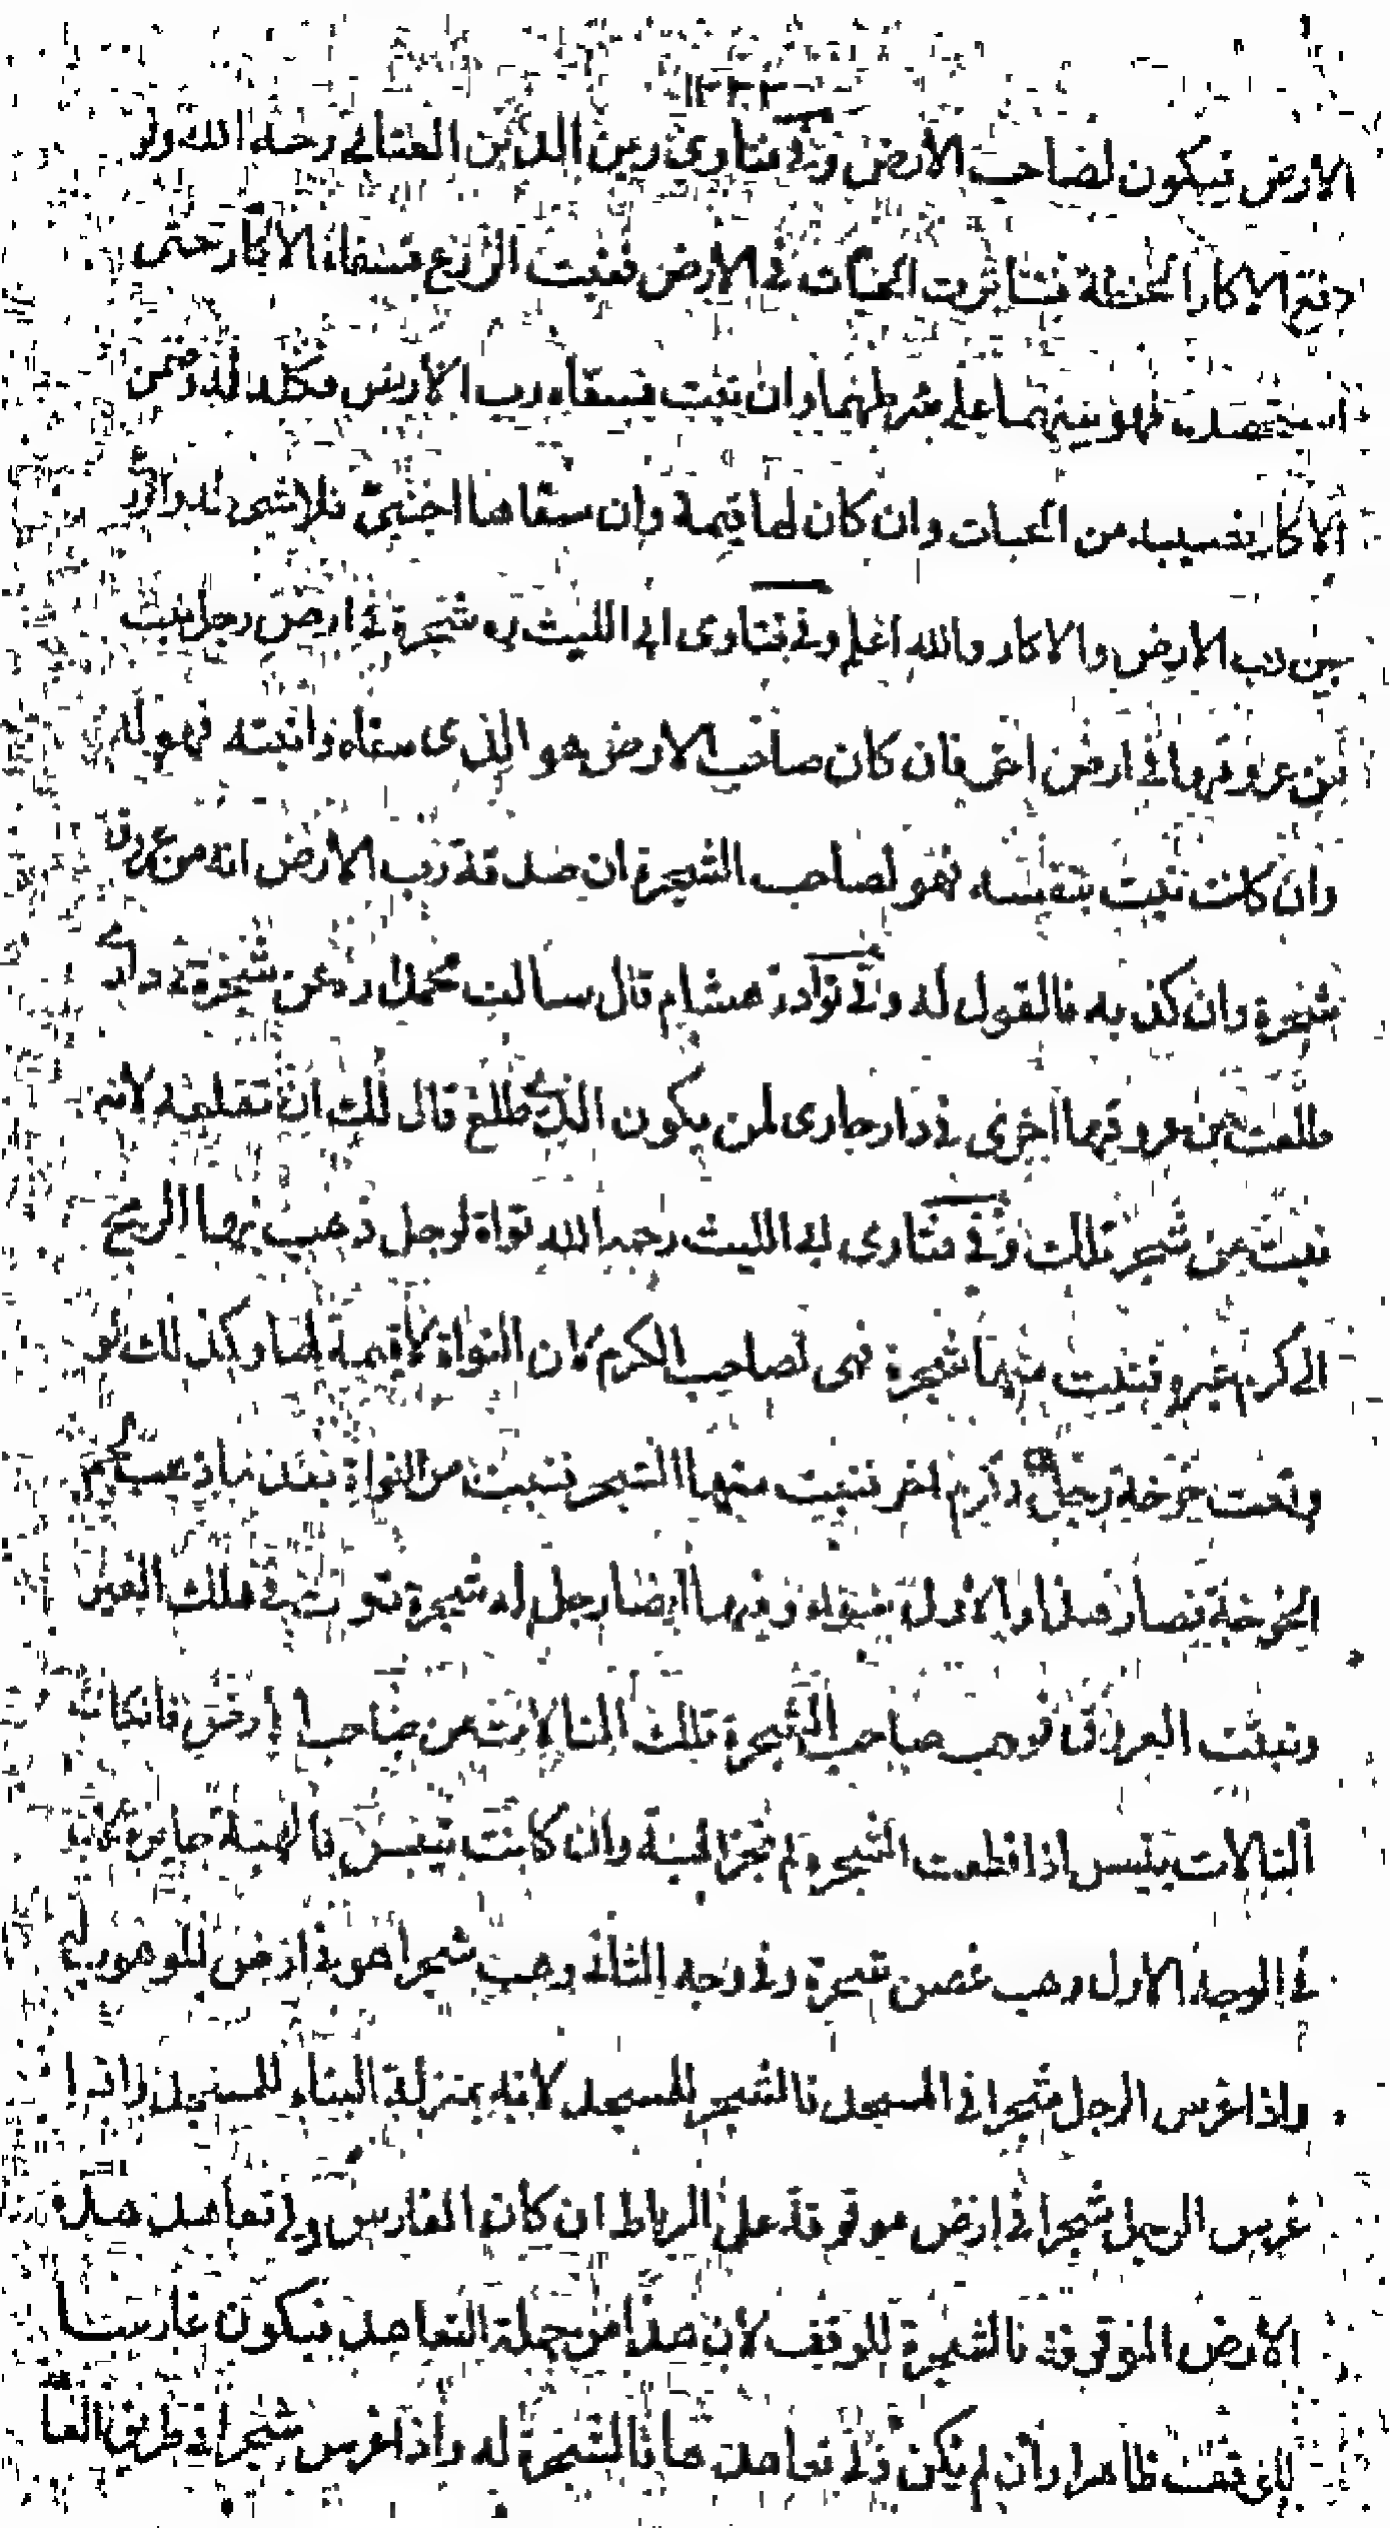 الارض فيكون لصاحب الارض وفي فتاوى زين الدين العتابي رحمه الله ولو
دفع الاكار الحنطة فتناثرت الحبات في الارض فنبت الزرع فسقاه الاكار حتى
استحصد فهو بينهما على شرطهما وان نبت فسقاه رب الارض فكله له وضمن
الاكار نصيبه من الحبات وان كان لها قيمة وان سقاها اجنبي فلا شيء له والزرع
بين رب الارض والاكار والله اعلم وفي فتاوى ابي الليث ره شجرة في ارض رجل نبت
من عروقها في ارض اخر فان كان صاحب الارض هو الذى سقاه وانبته فهو له
وان كانت نبت بنفسه فهو لصاحب الشجرة ان صدقة رب الارض انه من عروق
شجرة وان كذبه فالقول له وفي نوادر هشام قال سالت محمدا ره عن شجرة في دارى
طلعت من عروقها اخرى في دار جارى لمن يكون الذي طلع قال لك ان تقلعه لانه
نبت من شجر تلك وفي فتاوى ابي الليث رحمه الله نواة لرجل ذهب بها الريح
الى كرم غيره فنبت منها شجرة فهى لصاحب الكرم لان النواة لا قيمة لها وكذلك لو
وقعت خوخة رجل في كرم اخر فنبت منها الشجر فنبت من النواة بعد ما ذهب لحم
الخوخة فصار هذا والاول سواء وفيها ايضا رجل له شجرة نوت في ملك الغير
ونبتت العروق فوهب صاحب الشجرة تلك التالات من صاحب الارض فان كانت
التالات يتيبس اذا قطعت الشجرة لم تجز الهبة وان كانت تيبس فالهبة جائزة لانه
في الوجه الاول وهب غصن شجرة وفي وجه الثاني وهب شجرا هو في ارض للموهوب له
واذا غرس الرجل شجرا في المسجد فالشجر للمسجد لانه بمنزلة البناء للمسجد واذا
غرس الرجل شجرا في ارض موقوفة على الرباط ان كان الغارس ولى تعاهد هذه
الارض الموقوفة فالشجرة للوقف لان هذا من جملة التعاهد فيكون غارسا
للوقف ظاهرا وان لم يكن ولى تعاهدها فالشجرة له واذا غرس شجرا في طريق العا